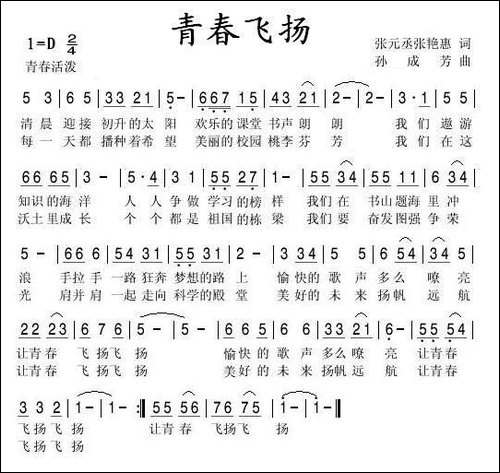 青春飞扬
1=D 2/4
张元丞张艳惠 词
青春活泼
孙成芳 曲
5 3 | 6 5 | 33 21 | 5 - | 667 15 | 43 21 | 2 - | 2 - | 3·1 | 5 5 |
清晨 迎接 初升的太 阳 欢乐的课堂 书声朗 朗 我们 遨游
每一 天都 播种着希 望 美丽的校园 桃李芬 芳 我们 在这
66 65 | 3 - | 5·4 | 3 1 | 55 27 | 1 - | 33 34 | 5 - | 55 11 | 6 34 |
知识的海 洋 人人 争做 学习的榜 样 我们在 书山题海 里冲
沃土里成 长 个个 都是 祖国的栋 梁 我们要 奋发图强 争荣
5 - | 66 6 | 54 31 | 55 31 | 2 - | 34 3 | 1 3 | 5 5 | 6 54 | 34 5 |
浪 手拉手 一路狂奔 梦想的路 上 愉快的 歌声 多么 嘹亮
光 肩并肩 一起走向 科学的殿 堂 美好的 未来 扬帆 远航
22 23 | 6 7 6 | 5 - | 5 - | 12 3 | 6 6 | 33 21 | 6 - | 55 54 |
让青春 飞扬飞 扬 愉快的 歌声 多么嘹 亮 让青春
让青春 飞扬飞 扬 美好的 未来 扬帆远 航 让青春
3 3 2 | 1 - | 1 - :| 55 56 | 76 75 | 1 - | 1 - ‖
飞扬飞 扬 让青春 飞扬飞 扬
飞扬飞 扬